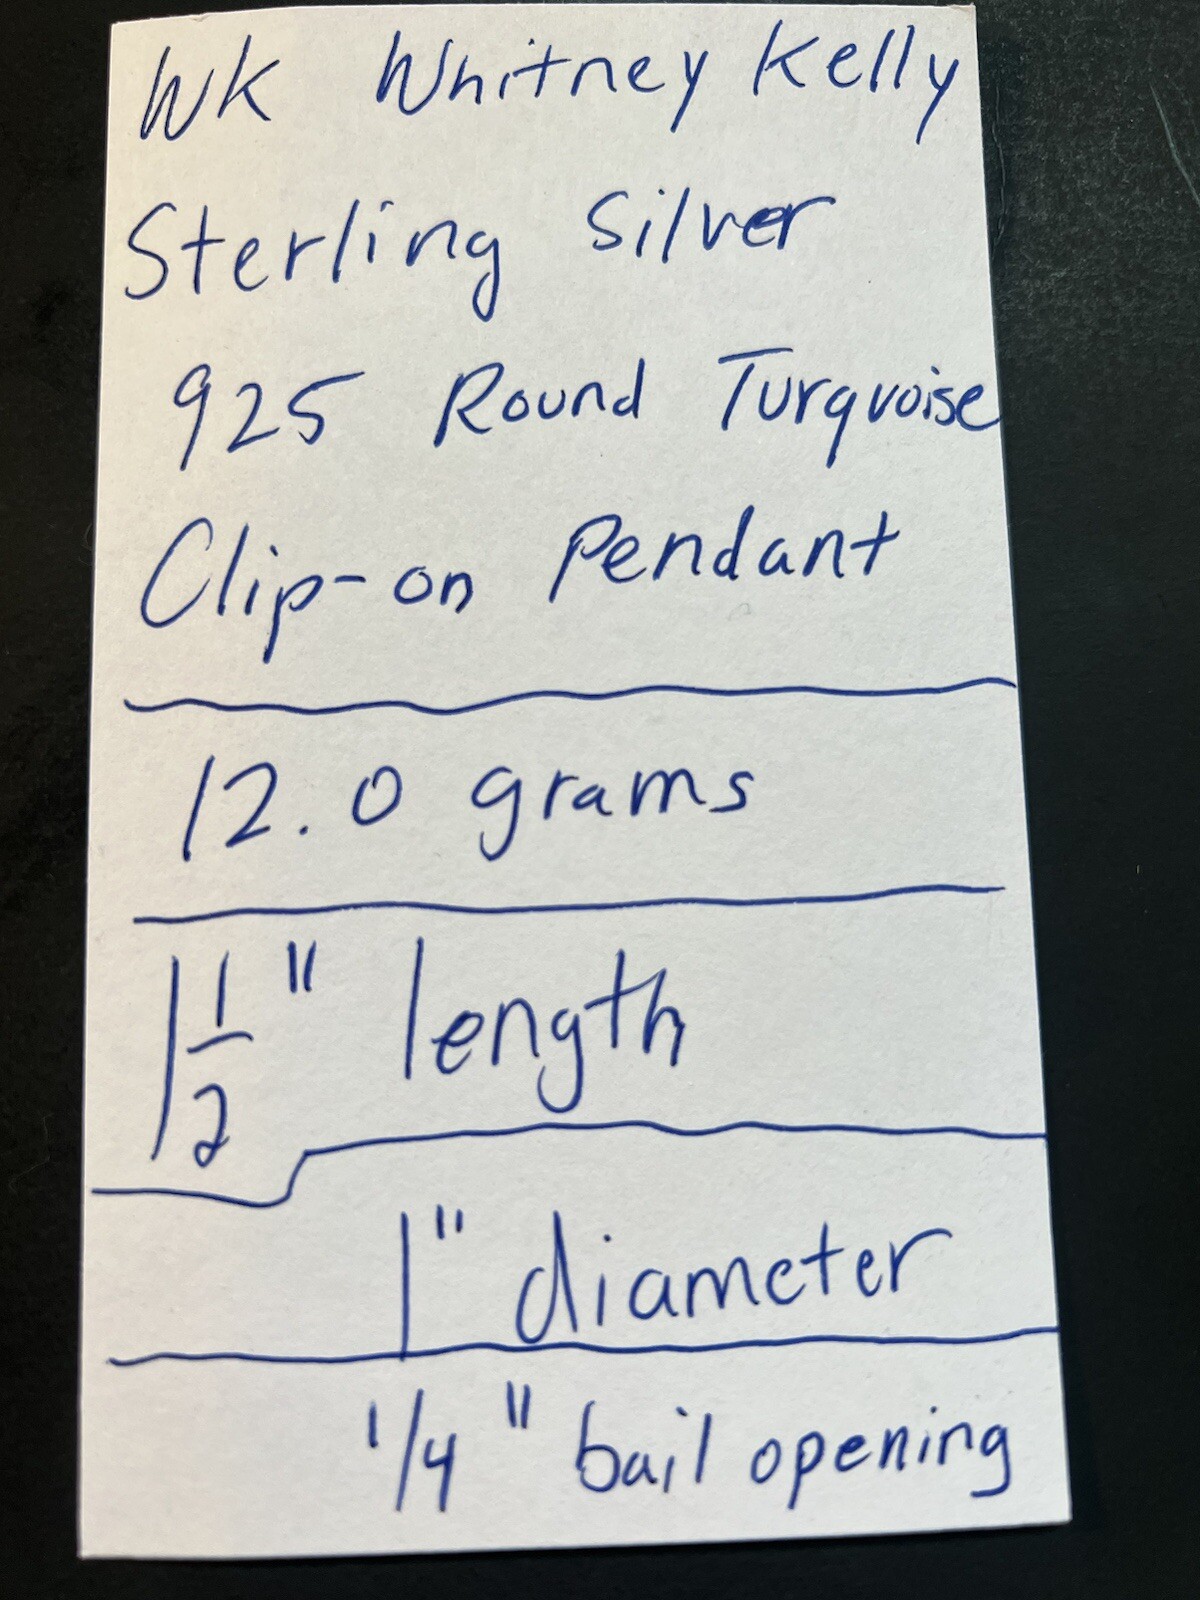 WK Whitney Kelly
Sterling Silver
925 Round Turquoise
Clip-on Pendant
12.0 grams
1 1/2" length
1" diameter
1/4" bail opening